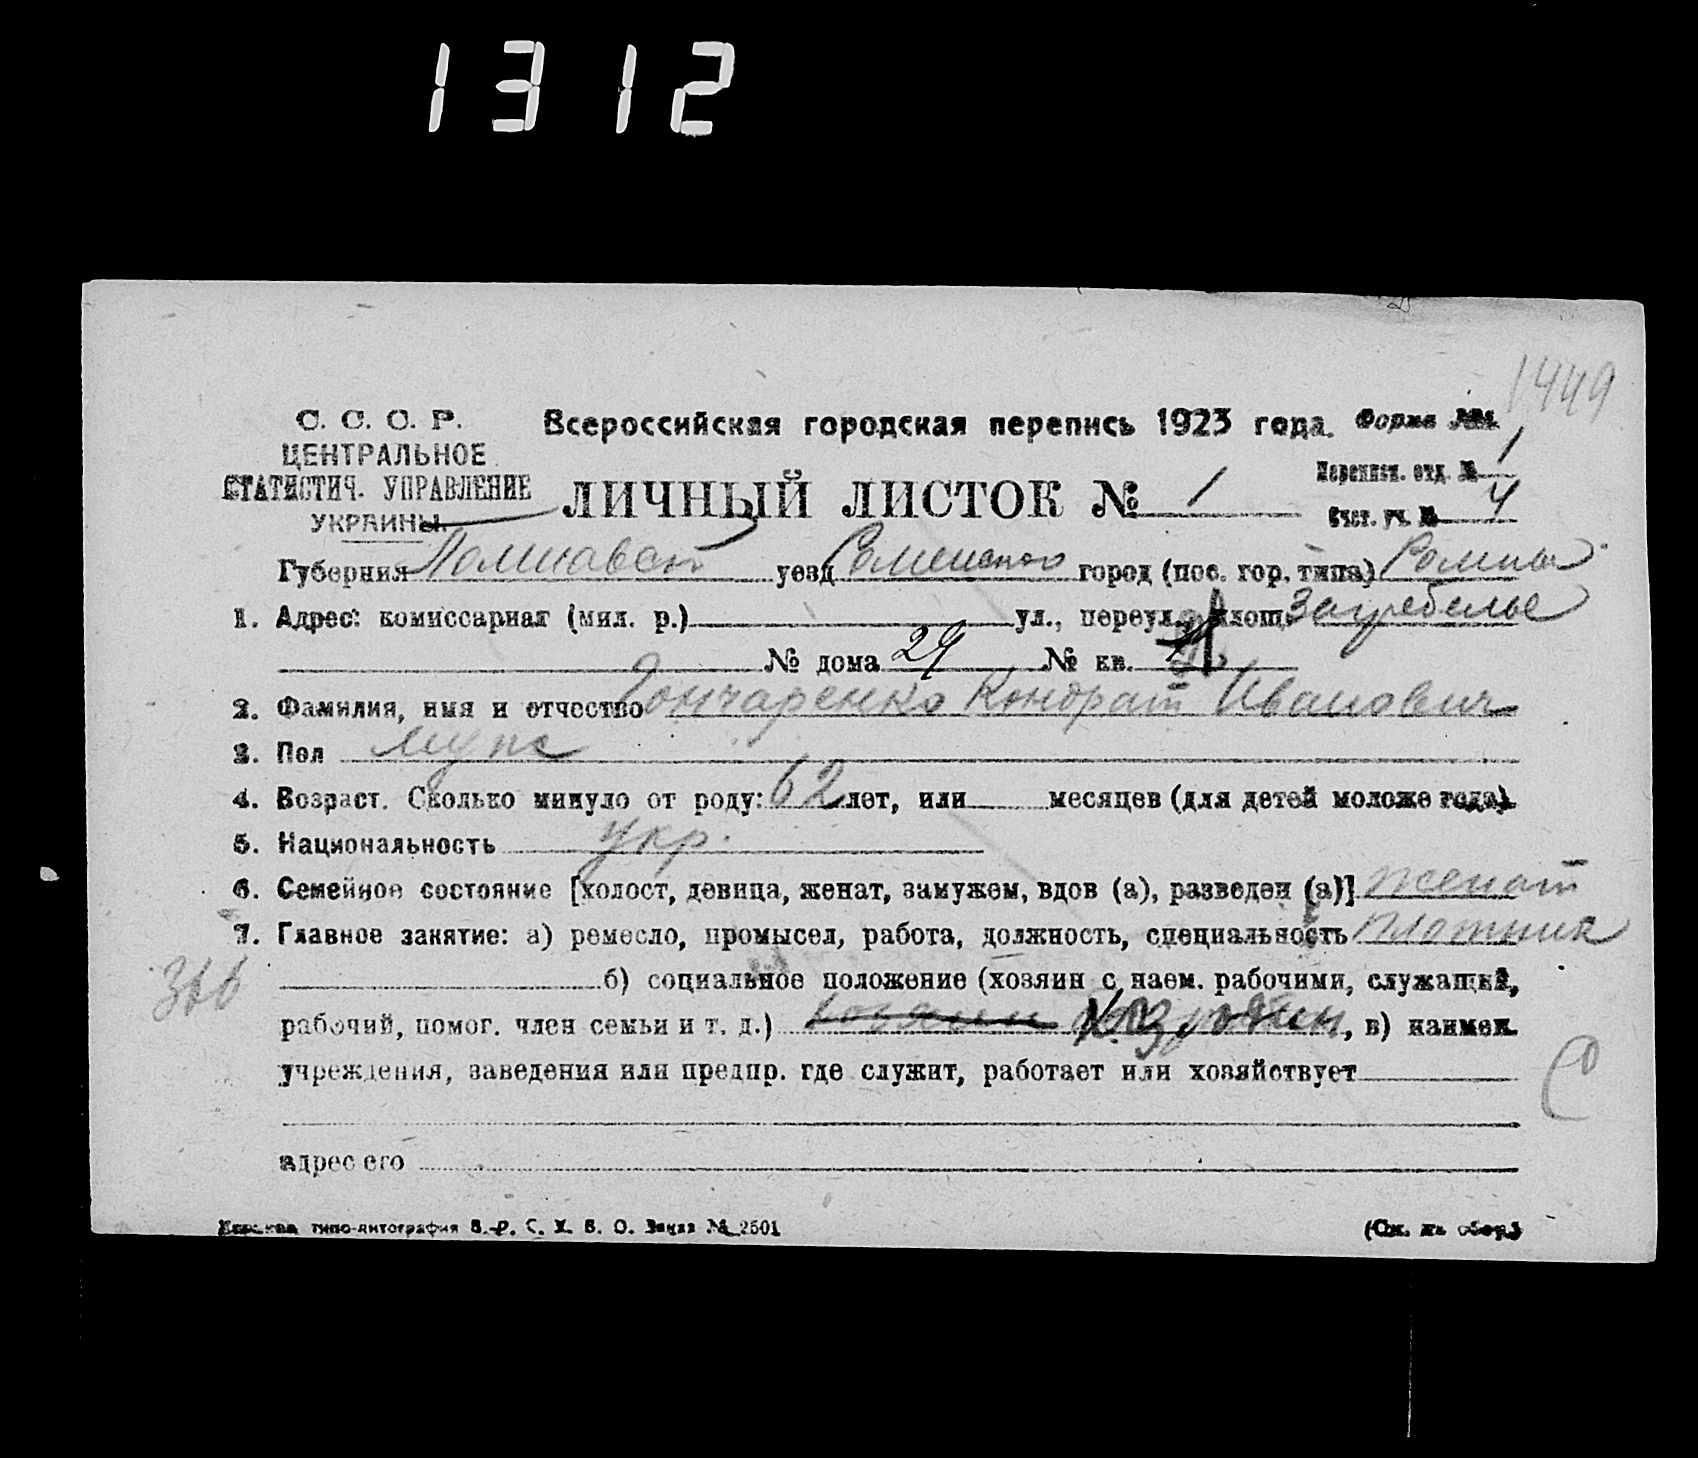 1312
1449
С. С. С. Р.
ЦЕНТРАЛЬНОЕ
СТАТИСТИЧ. УПРАВЛЕНИЕ
УКРАИНЫ.
Всероссийская городская перепись 1923 года. Форма №1.
ЛИЧНЫЙ ЛИСТОК № 1
Переписн. отд. № 1
Счет. уч. № 4
Губерния Полтавск уезд Роменского город (пос. гор. типа) Ромны
1. Адрес: комиссариат (мил. р.) ул., переул., площ. Загребелье
№ дома 29 № кв.
2. Фамилия, имя и отчество Гончаренко Кондрат Иванович
3. Пол муж
4. Возраст. Сколько минуло от роду: 62 лет, или месяцев (для детей моложе года).
5. Национальность укр.
6. Семейное состояние [холост, девица, женат, замужем, вдов (а), разведен (а)] женат
7. Главное занятие: а) ремесло, промысел, работа, должность, специальность плотник
б) социальное положение (хозяин с наем. рабочими, служащий,
рабочий, помог. член семьи и т. д.) хозяин, в) наимен.
учреждения, заведения или предпр. где служит, работает или хозяйствует
адрес его
типо-литография В.-Р. С. Х. В. О. Заказ № 2501
(См. на обор.)